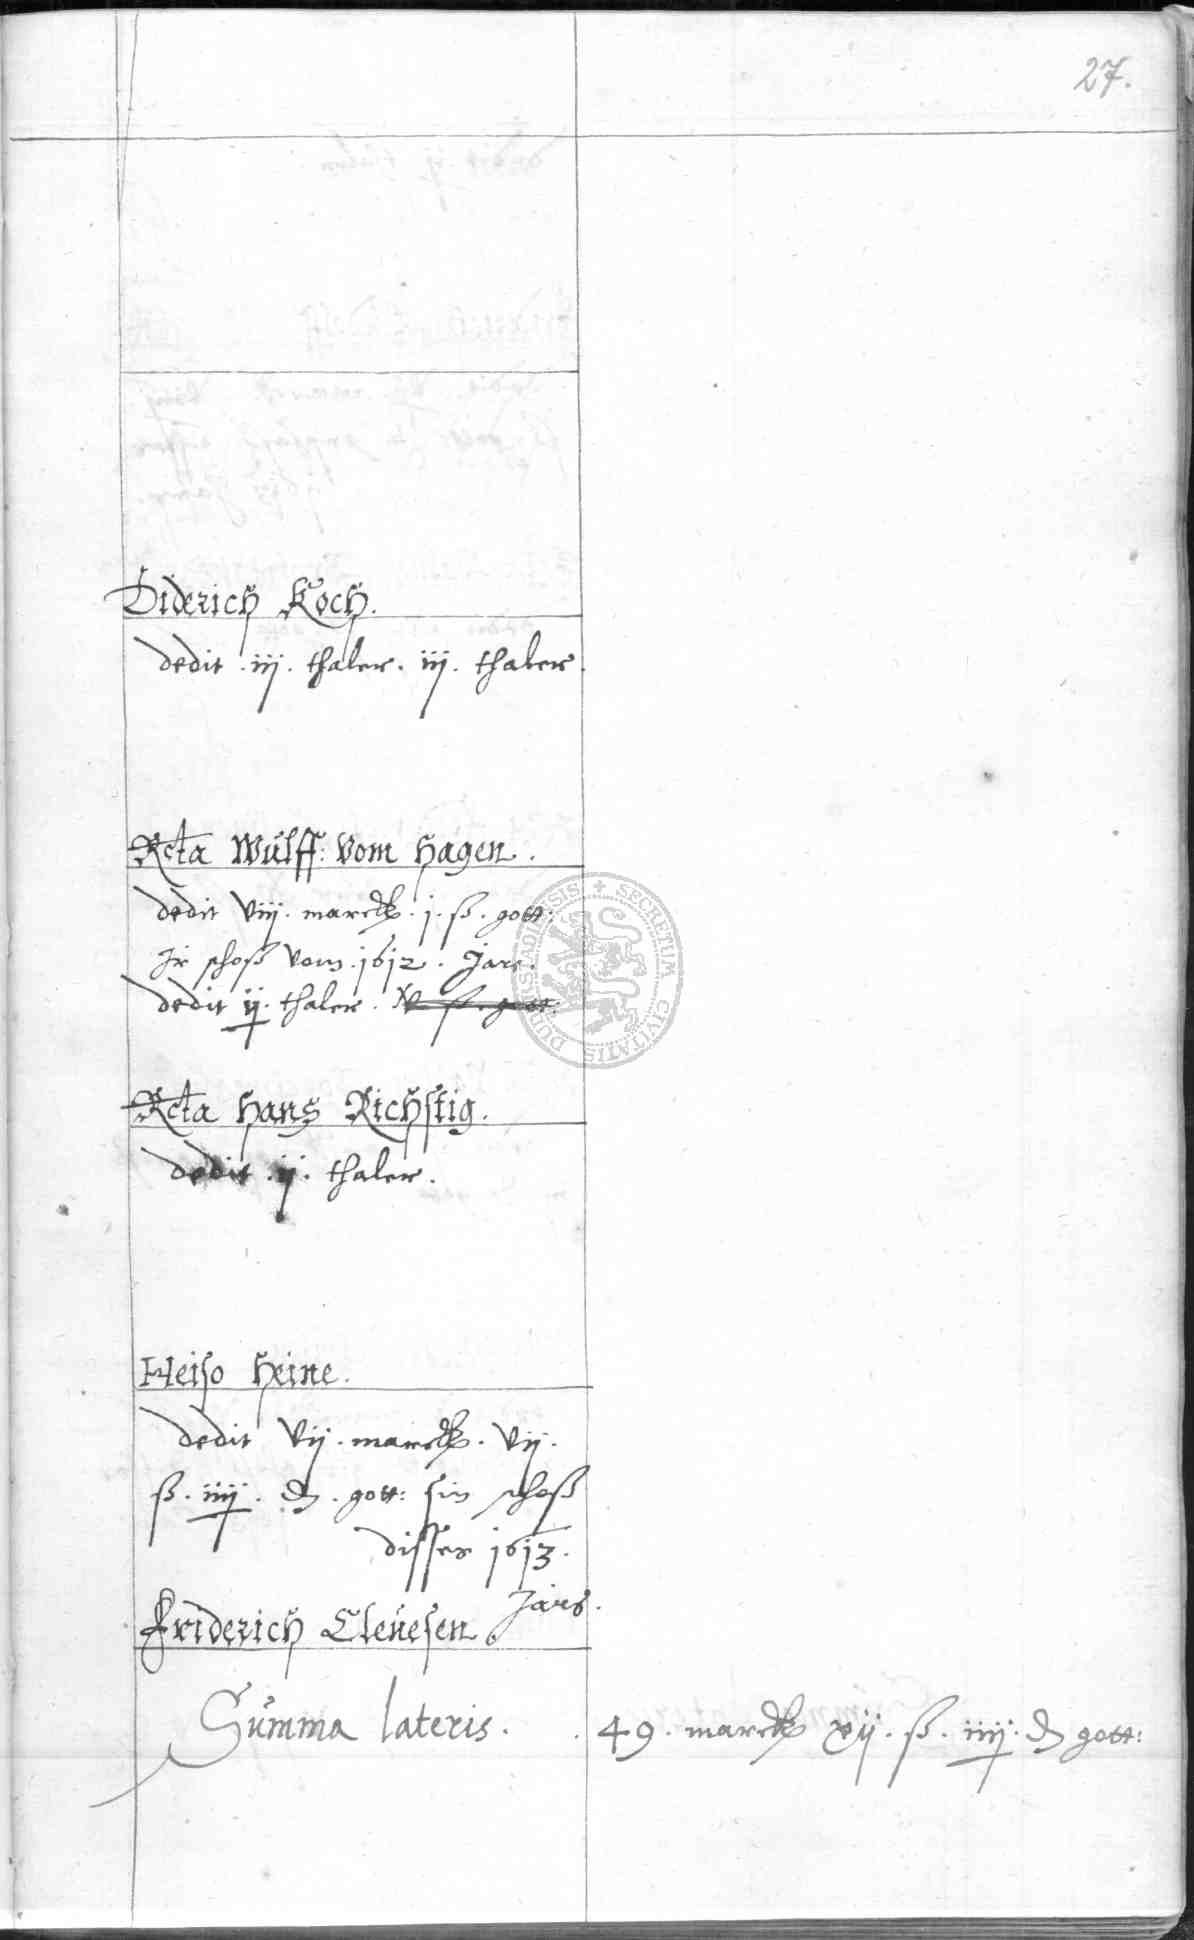 27.
Diderich Koch.
dedit .iij. thaler. iij. thaler.
Rcta Wulff: vom Hagen.
dedit viij. marck. j. ß. gott:
Ir schoß vom .1612. Jare.
dedit ij. thaler.
Rcta Hans Richstig.
dedit .ij. thaler.
Heiso Heine.
dedit vij. marck. vij.
ß. iiij. d. gott: sin schoß
disser 1613.
Jars.
Friderich Clevesen
Summa lateris. . 49. marck xij. ß. iiij. d gott:
SECRETUM CIVITATIS DUDERSTADIENSIS